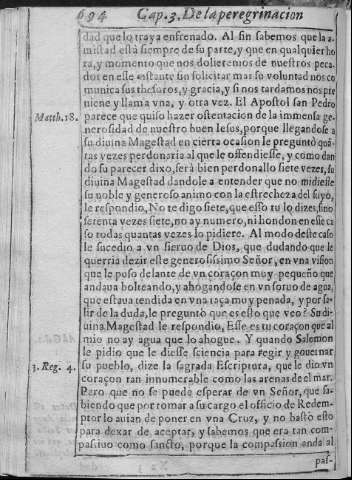 694 Cap. 3. De la peregrinacion
dad que lo traya enfrenado. Al fin sabemos que la a-
mistad està siempre de su parte, y que en qualquier ho
ra, y momento que nos dolieremos de nuestros peca
dos en este instante sin solicitar mas su voluntad nos co
munica sus thesoros, y gracia, y si nos tardamos nos pre
uiene y llama vna, y otra vez. El Apostol san Pedro
Matth. 18. parece que quiso hazer ostentacion de la immensa ge-
nerosidad de nuestro buen Iesus, porque llegandose a
su diuina Magestad en cierta ocasion le preguntò quã
tas vezes perdonaria al que le offendiesse, y como dan
do su parecer dixo, serà bien perdonallo siete vezes, su
diuina Magestad dandole a entender que no midiesse
su noble y generoso animo con la estrecheza del suyo,
le respondio, No te digo siete, que esso tu lo dizes, sino
setenta vezes siete, no ay numero, ni hondon en esse ca
so todas quantas vezes lo pidiere. Al modo deste caso
le sucedio a vn sieruo de Dios, que dudando que le
querria dezir este generosissimo Señor, en vna vision
que le puso delante de vn coraçon muy pequeño que
andaua bolteando, y ahogandose en vn soruo de agua,
que estaua tendida en vna taça muy penada, y por sa-
lir de la duda, le preguntò que es esto que veo? Su di-
uina Magestad le respondio, Esse es tu coraçon que al
mio no ay agua que lo ahogue. Y quando Salomon
le pidio que le diesse sciencia para regir y gouernar
3. Reg. 4. su pueblo, dize la sagrada Escriptura, que le dio vn
coraçon tan innumerable como las arenas de el mar.
Pero que no se puede esperar de vn Señor, que sa-
biendo que por tomar a su cargo el officio de Redemp
tor lo auian de poner en vna Cruz, y no bastò esto
para dexar de aceptar, y sabemos que era tan com-
passiuo como sancto, porque la compassion anda al
pas-